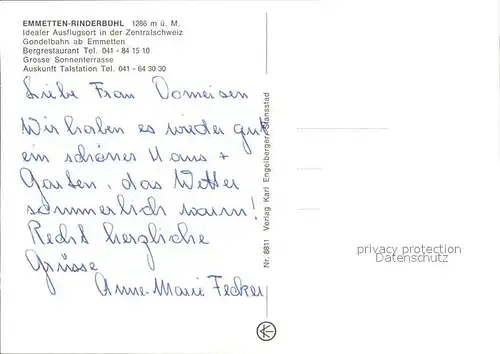 EMMETTEN-RINDERBÜHL 1286 m ü. M.
Idealer Ausflugsort in der Zentralschweiz
Gondelbahn ab Emmetten
Bergrestaurant Tel. 041 - 84 15 10
Grosse Sonnenterrasse
Auskunft Talstation Tel. 041 - 64 30 30
Liebe Frau Domeisen
Wir haben es wieder gut
ein schönes Haus +
Garten, das Wetter
sommerlich warm!
Recht herzliche
Grüsse
Anne-Marie Fecker
Nr. 8811 Verlag Karl Engelberger, Stansstad
privacy protection
Datenschutz